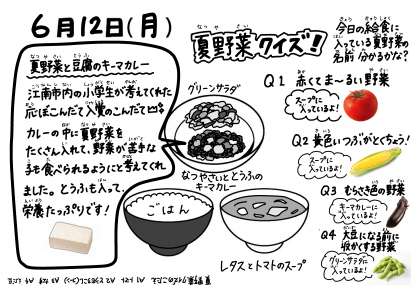 6月12日(月)
夏野菜と豆腐のキーマカレー
江南市内の小学生が考えてくれた
応ぼこんだて入賞のこんだて
カレーの中に夏野菜を
たくさん入れて、野菜が苦手な
子も食べられるようにと考えてくれ
ました。とうふも入って、
栄養たっぷりです!
グリーンサラダ
なつやさいととうふの
キーマカレー
ごはん
レタスとトマトのスープ
夏野菜クイズ!
今日の給食に
入っている夏野菜の
名前 分かるかな?
Q1 赤くてま~るい野菜
スープに
入っているよ!
Q2 黄色いつぶがとくちょう!
スープに
入っているよ!
Q3 むらさき色の野菜
キーマカレーに
入っているよ!
Q4 大豆になる前に
収かくする野菜
グリーンサラダに
入っているよ!